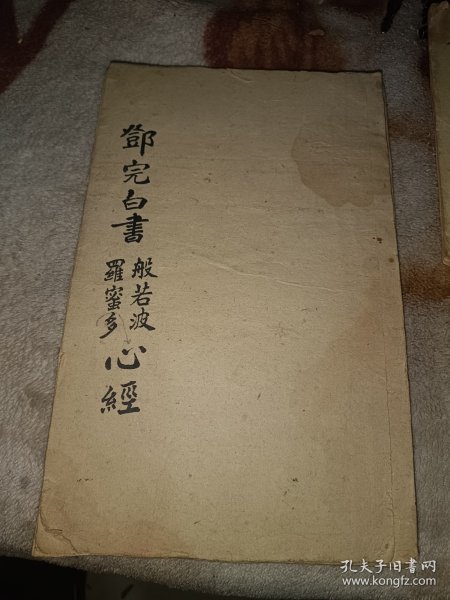 鄧完白書
般若波
羅蜜多
心經
孔夫子旧书网
www.kongfz.com